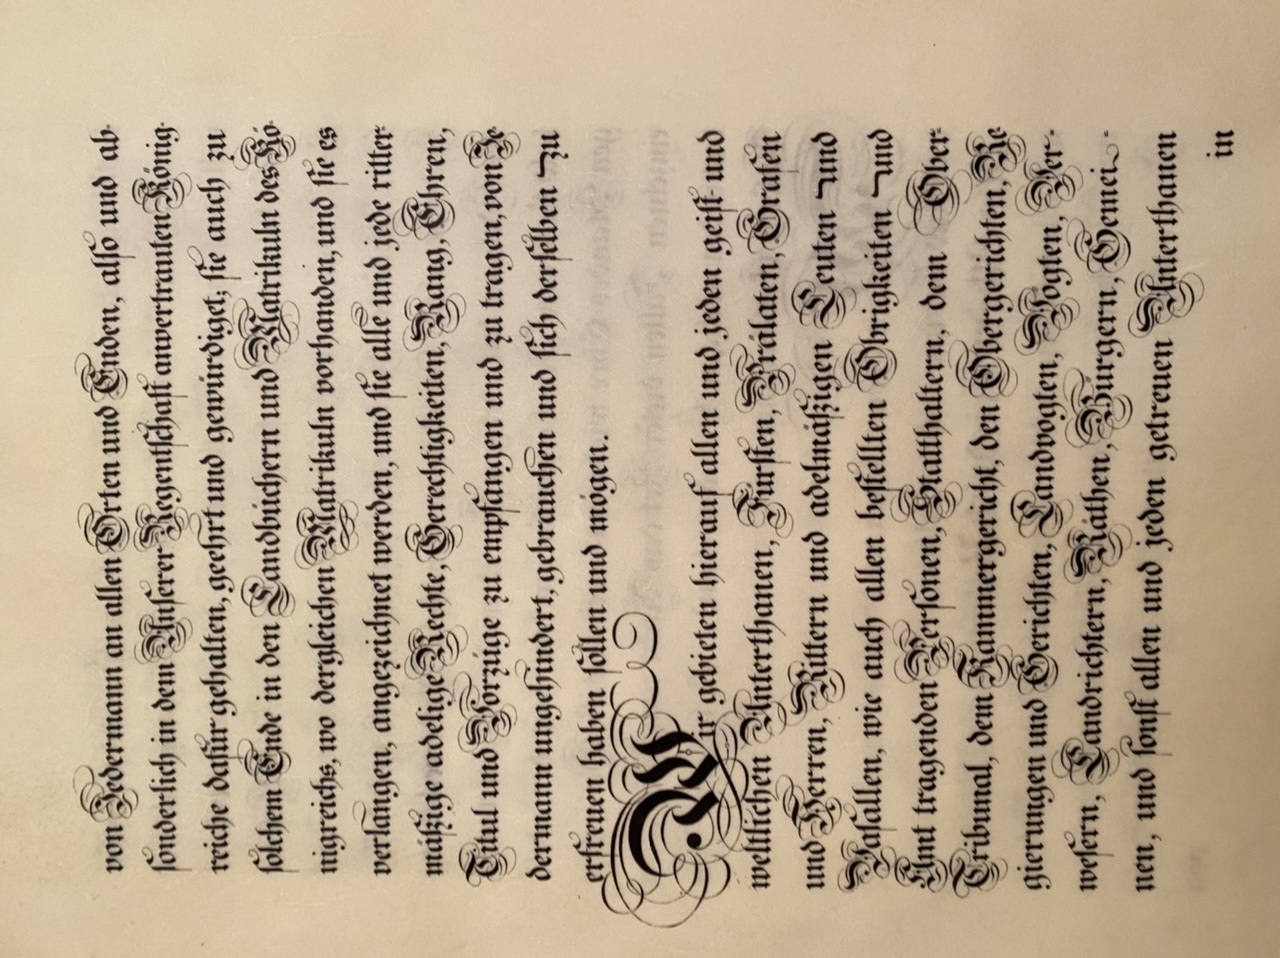 von Jedermann an allen Orten und Enden, also und ab-
sonderlich in dem Unserer Regentschaft anvertrauten König-
reiche dafür gehalten, geehrt und gewürdiget; sie auch zu
solchem Ende in den Landbüchern und Matrikuln des Kö-
nigreichs, wo dergleichen Matrikuln vorhanden, und sie es
verlangen, angezeichnet werden, und sie alle und jede ritter-
mäßige adelige Rechte, Gerechtigkeiten, Rang, Ehren,
Titul und Vorzüge zu empfangen und zu tragen, von Je
dermann ungehindert, gebrauchen und sich derselben zu
erfreuen haben sollen und mögen.
Wir gebieten hierauf allen und jeden geist- und
weltlichen Unterthanen, Fürsten, Prälaten, Grafen
und Herren, Rittern und adelmäßigen Leuten und
Vasallen, wie auch allen bestellten Obrigkeiten und
Amt tragenden Personen, Statthaltern, dem Ober-
Tribunal, dem Kammergericht, den Obergerichten, Re
gierungen und Gerichten, Landvogten, Vogten, Ver-
wesern, Landrichtern, Räthen, Bürgern, Gemei-
nen, und sonst allen und jeden getreuen Unterthanen
in